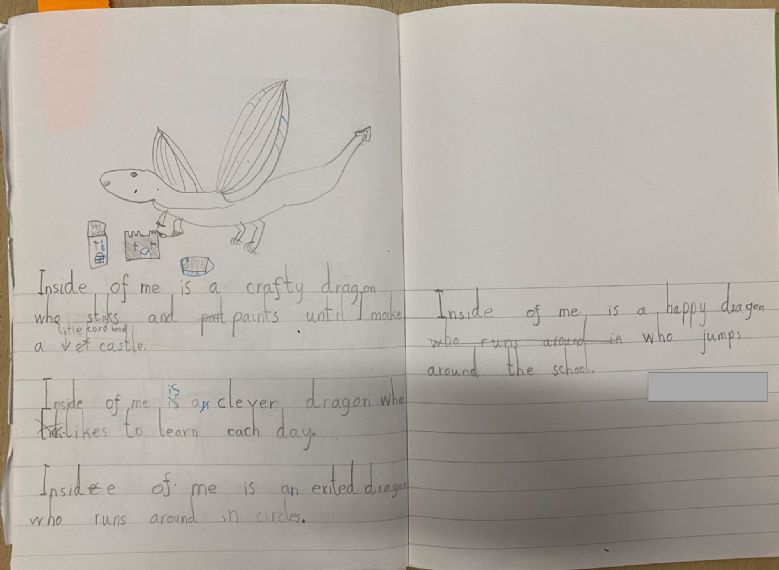 Inside of me is a crafty dragon
who stiks and paints until I make
little card bord
a castle.
Inside of me is a clever dragon who
likes to learn each day.
Inside of me is an exited dragon
who runs around in circles.
Inside of me is a happy dragon
who runs around in who jumps
around the school.